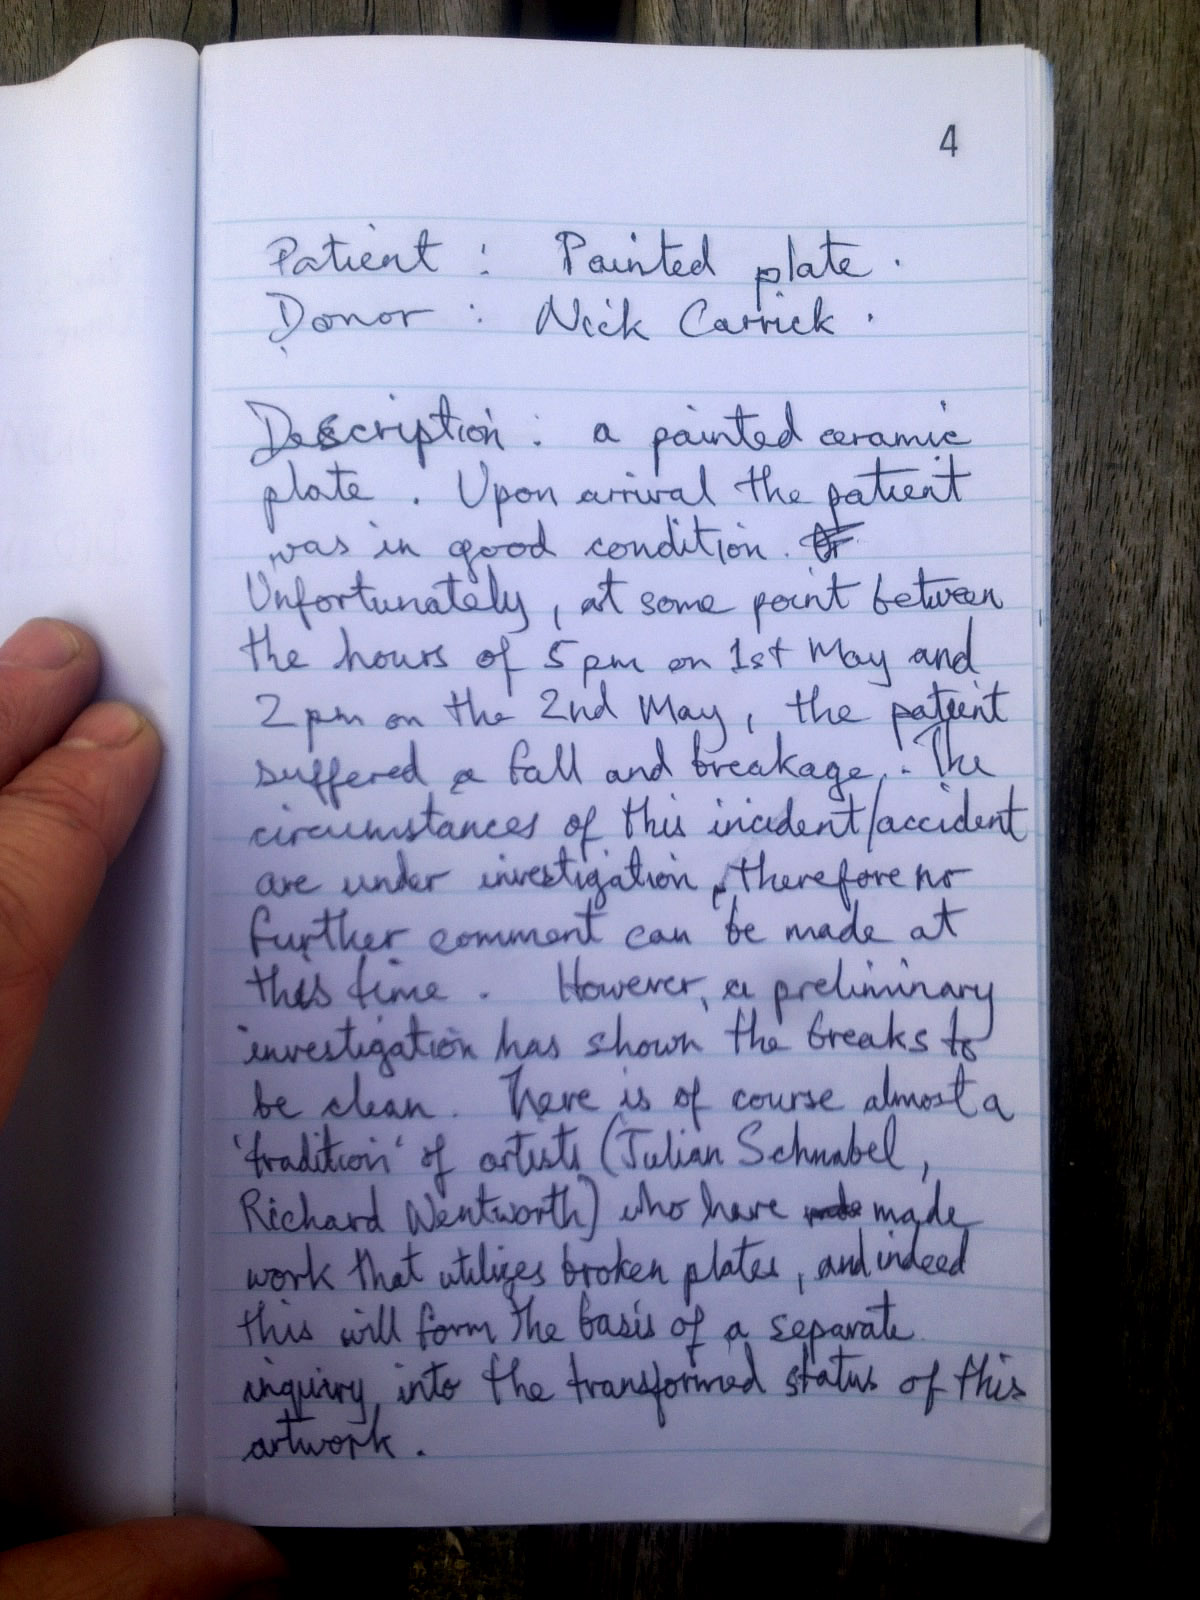 4
Patient : Painted plate .
Donor : Nick Carrick .
Description : a painted ceramic
plate . Upon arrival the patient
was in good condition .
Unfortunately , at some point between
the hours of 5 pm on 1st May and
2 pm on the 2nd May , the patient
suffered a fall and breakage . The
circumstances of this incident/accident
are under investigation , therefore no
further comment can be made at
this time . However, a preliminary
investigation has shown the breaks to
be clean . There is of course almost a
'tradition' of artists (Julian Schnabel ,
Richard Wentworth) who have made
work that utilizes broken plates , and indeed
this will form the basis of a separate
inquiry into the transformed status of this
artwork .